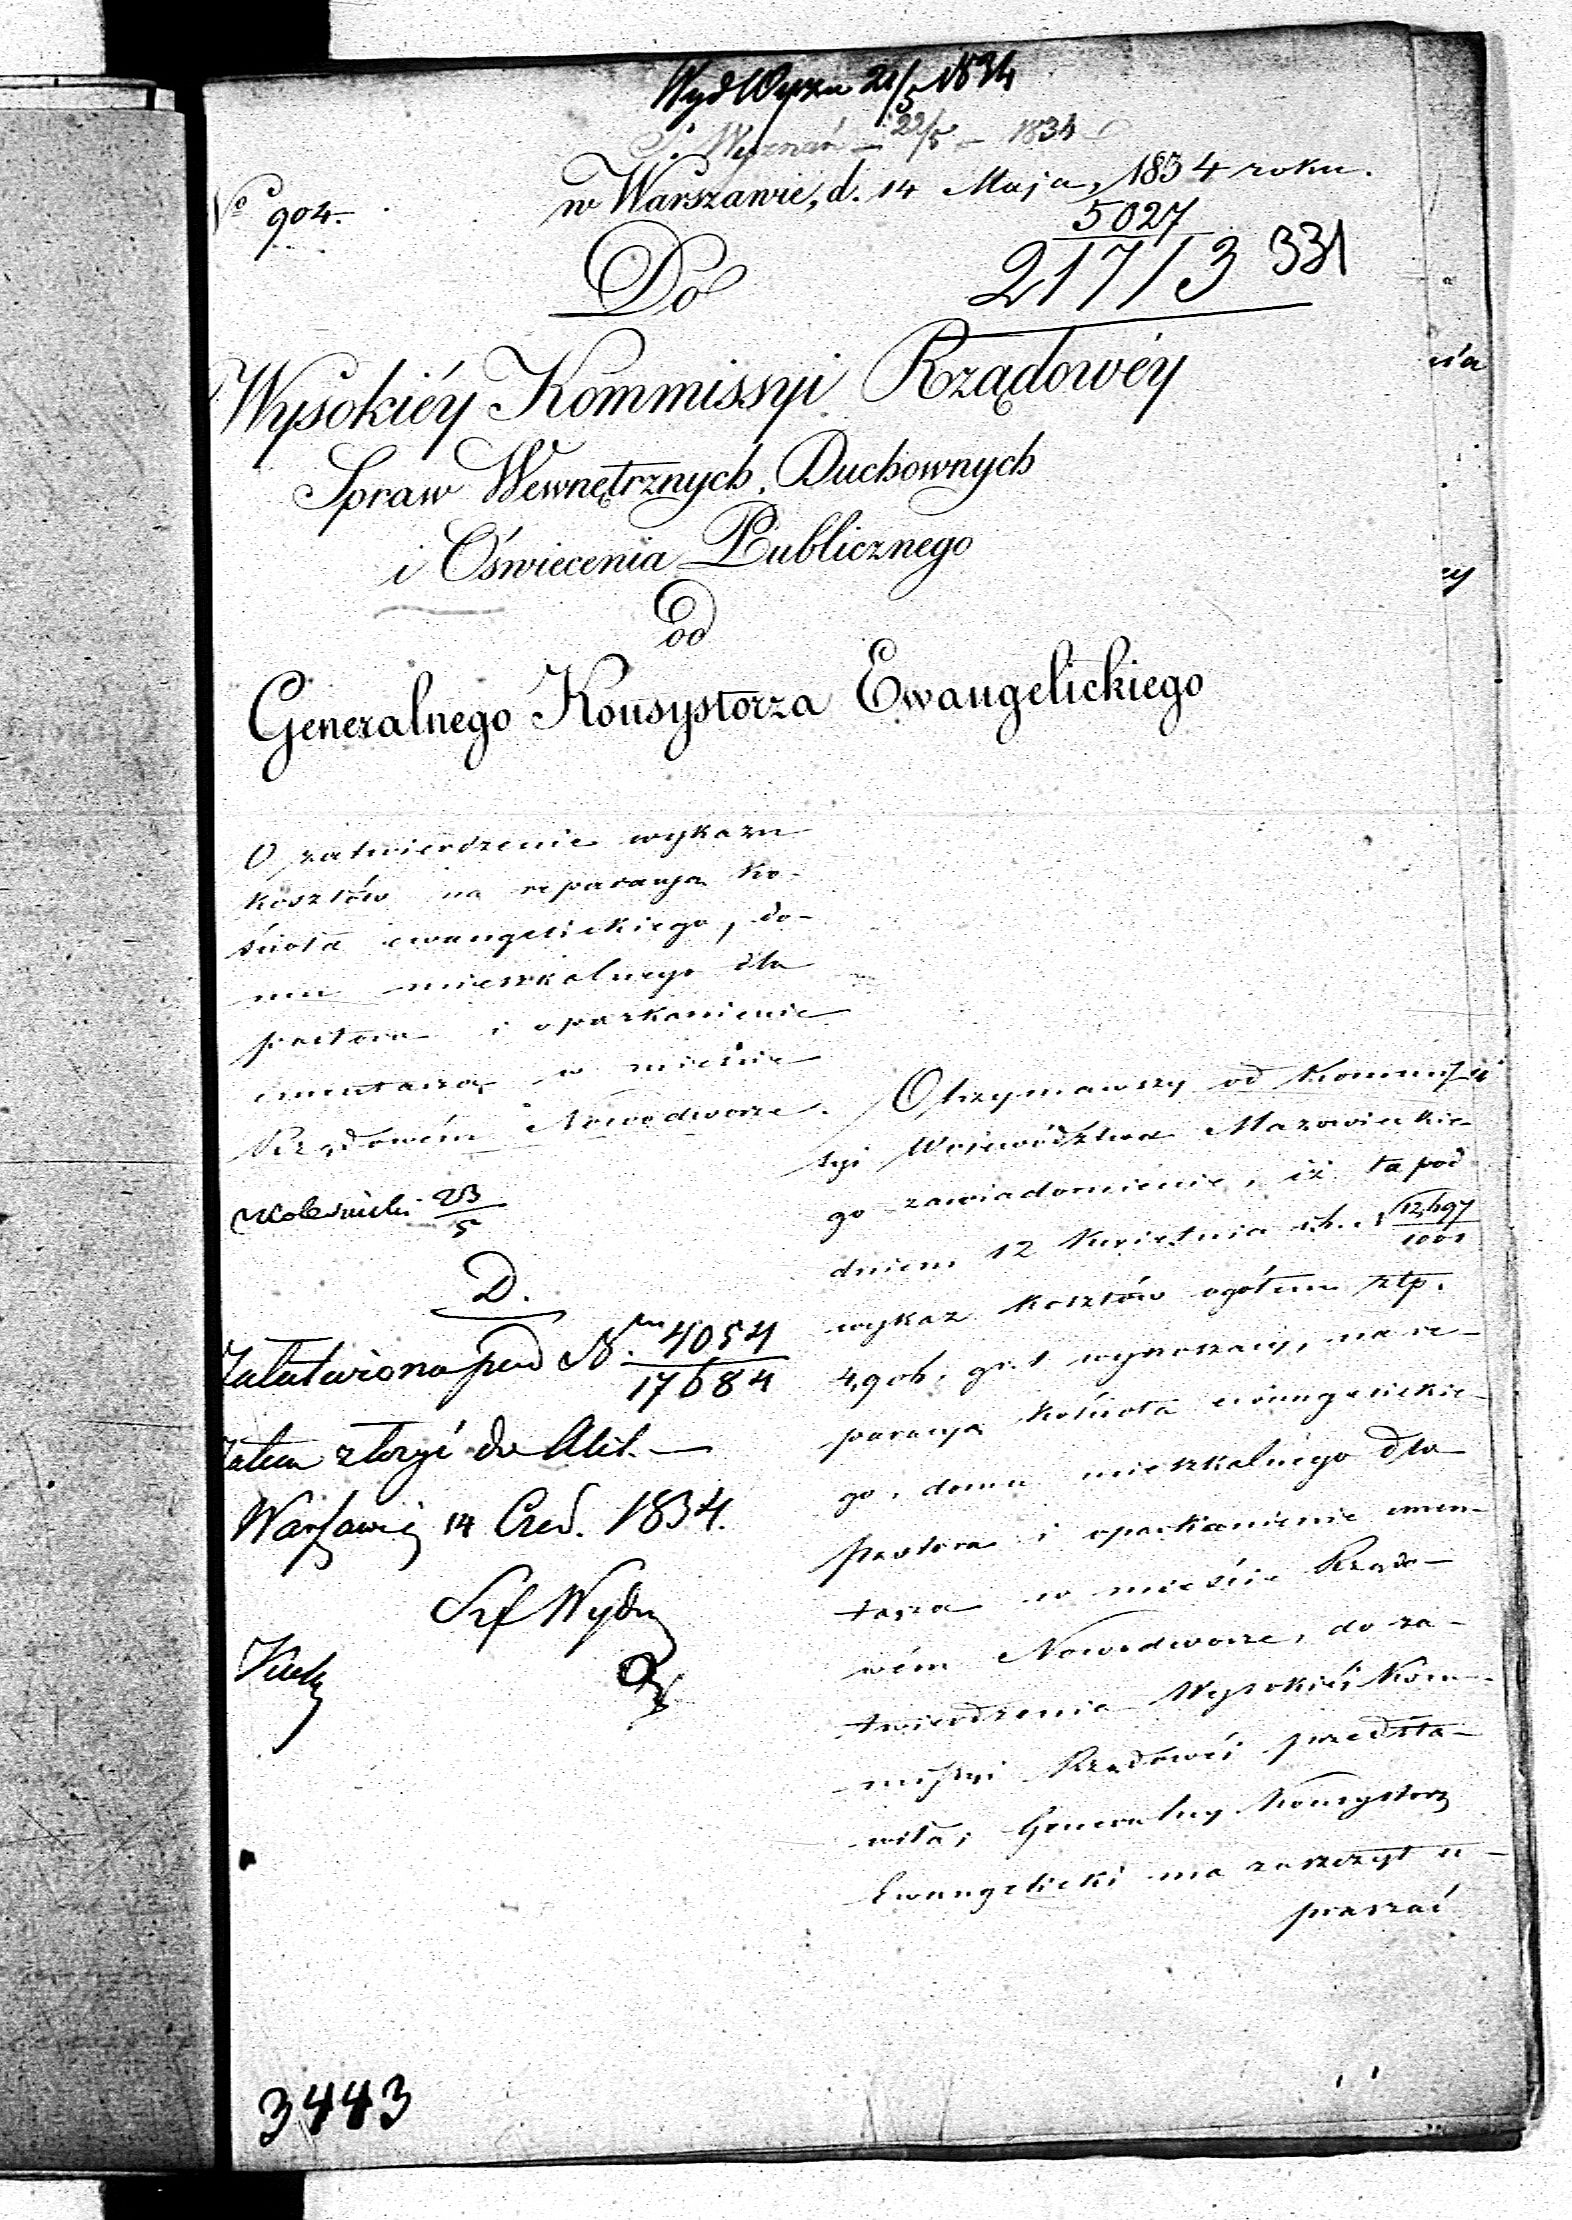 Wyd Wyzn 21/5 1834
S. Wyznań – 22/5 – 1834
No 904.
w Warszawie, d. 14 Maja, 1834 roku.
5027
21713 331
Do
Wysokiéy Kommissyi Rządowéy
Spraw Wewnętrznych, Duchownych
i Oświecenia Publicznego
Od
Generalnego Konsystorza Ewangelickiego
O zatwierdzenie wykazu
kosztów na reparacyą ko-
ścioła ewangelickiego, do-
mu mieszkalnego dla
pastora i oparkanienie
cmentarza w mieście
Rządowém Nowodworze.
23/5
D.
Załatwiono pod N. 4054
17684
zatem złożyć do Akt.
Warszawie 14 Czer. 1834.
Szef Wydz
Otrzymawszy od Kommis-
syi Województwa Mazowieckie-
go zawiadomienie, iż ta pod
dniem 12 Kwietnia r.b.
wykaz kosztów ogółem złp.
4,906, gr. 1 wynoszący, na re-
paracyą kościoła ewangelickie-
go, domu mieszkalnego dla
pastora i oparkanienie cmen-
tarza w mieście Rządo-
wém Nowodworze, do za-
twierdzenia Wysokiéj Kom-
missyi Rządowéj przedsta-
wiła; Generalny Konsystorz
Ewangelicki ma zaszczyt u-
praszać
3443